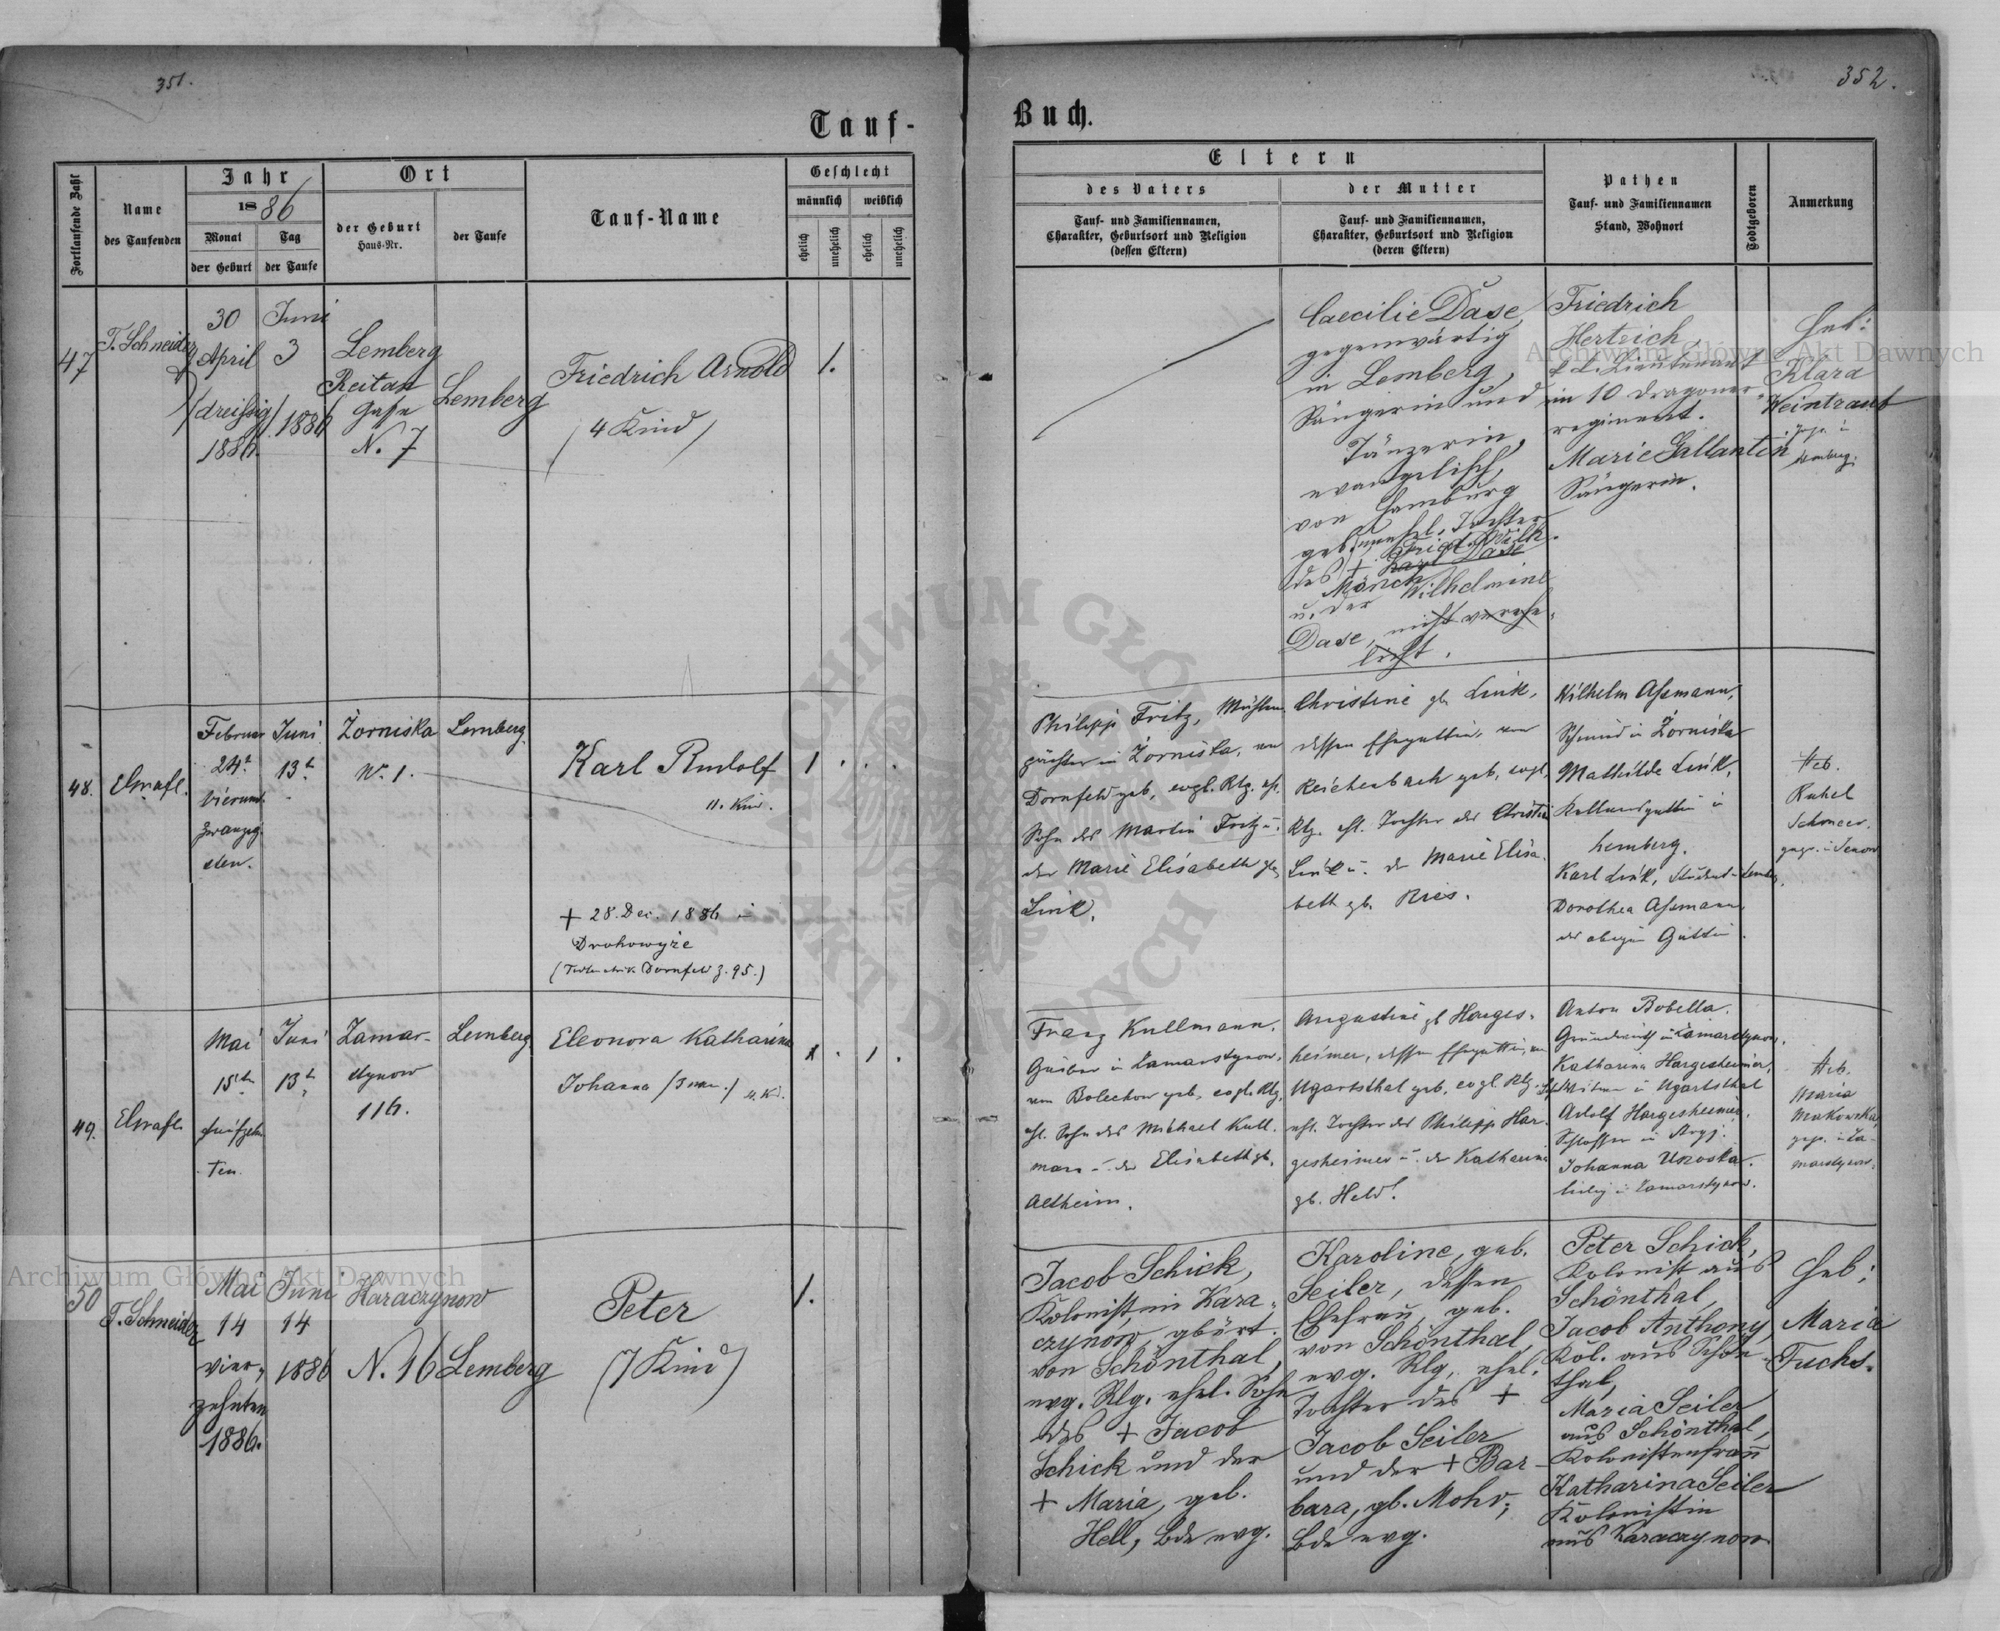 351.
352.
Tauf-
Buch.
Fortlaufende Zahl
Name
des Taufenden
Jahr
1886
Monat
der Geburt
Tag
der Taufe
Ort
der Geburt
Haus-Nr.
der Taufe
Tauf-Name
Geschlecht
männlich
weiblich
ehelich
unehelich
ehelich
unehelich
Eltern
des Vaters
Tauf- und Familiennamen,
Charakter, Geburtsort und Religion
(dessen Eltern)
der Mutter
Tauf- und Familiennamen,
Charakter, Geburtsort und Religion
(deren Eltern)
Pathen
Tauf- und Familiennamen
Stand, Wohnort
Todtgeboren
Anmerkung
47
T. Schneider
30
April
/dreißig/
1886.
Juni
3
1886
Lemberg
Reitan
Gasse
N. 7
Lemberg
Friedrich Arnold
/4 Kind/
1.
Caecilie Dase,
gegenwärtig
in Lemberg,
Sängerin und
Tänzerin,
evangelisch,
von Hamburg
geb. unehel. Tochter
des + Karl Dase
Fried. Wilh.
Mönch
u. der Wilhelmine
Dase, nicht verehe-
licht.
Friedrich
Hertrich,
k. k. Lieutenant
im 10 Dragoner-
regiment.
Marie Gallantin
Sängerin.
Heb:
Klara
Weintraub
Lemberg.
48.
Februar
24t
vierund
zwanzig
sten.
Juni
13t
Żorniska
N. 1.
Lemberg
Karl Rudolf
11. Kind.
+ 28. Dec. 1886 in
Drohowyże
Dornfeld z. 95.)
1 . . .
Philipp Fritz, Mühlen
pächter in Żorniska, von
Dornfeld geb, evgl. Rlg. ehl.
Sohn des Martin Fritz u.
der Marie Elisabeth gb.
Link.
Christine gb. Link,
dessen Ehegattin, von
Reichenbach geb, evgl.
Rlg. ehl. Tochter des Christian
Link u. der Marie Elisa-
beth gb. Ries.
Wilhelm Aßmann,
Schmied in Żorniska
Mathilde Link,
in
Lemberg.
Karl Link, Student in Lemberg,
Dorothea Aßmann,
des obigen Gattin.
Heb.
Rahel
gepr. in Janow
49.
Mai
15ten
fünfzehn
ten
Juni
13t
Zamar-
stynow
116.
Lemberg
Eleonora Katharina
Johanna
. 1 .
Franz Kullmann,
in Zamarstynow,
von Bolechow geb, evgl. Rlg,
ehl. Sohn des Michael Kull-
mann u. der Elisabeth gb.
Altheim.
Augustine gb Harges-
heimer, dessen Ehegattin, von
Ugartsthal geb, evgl. Rlg.
ehl. Tochter des Philipp Har-
gesheimer u. der Katharina
gb. Held.
Anton Bobella.
Grundwirth in Zamarstynow,
Katharina Hargesheimer,
Witwe in Ugartsthal
Adolf Hargesheimer,
Schlosser in
Johanna
ledig in Zamarstynow.
Heb.
Maria
Makowska,
gepr. in Za-
marstynow.
50
T. Schneider
Mai
14
vier-
zehnten
1886.
Juni
14
1886
Karaczynow
N. 16
Lemberg
Peter
(7 Kind)
1.
Jacob Schick,
Kolonist in Kara-
czynow, gbürt.
von Schönthal,
evg. Rlg. ehel. Sohn
des + Jacob
Schick und der
+ Maria, geb.
Hell, bde evg.
Karoline, geb.
Seiler, dessen
Ehefrau, geb.
von Schönthal,
evg. Rlg. ehel.
Tochter des +
Jacob Seiler
und der + Bar-
bara, gb. Mohr,
bde evg.
Peter Schick,
Kolonist aus
Schönthal,
Jacob Anthony,
Kol. aus Schön-
thal,
Maria Seiler
aus Schönthal,
Kolonistenfrau
Katharina Seiler
Kolonistin
aus Karaczynow
Heb:
Maria
Fuchs.
Archiwum Główne Akt Dawnych
Archiwum Główne Akt Dawnych
ARCHIWUM GŁÓWNE AKT DAWNYCH